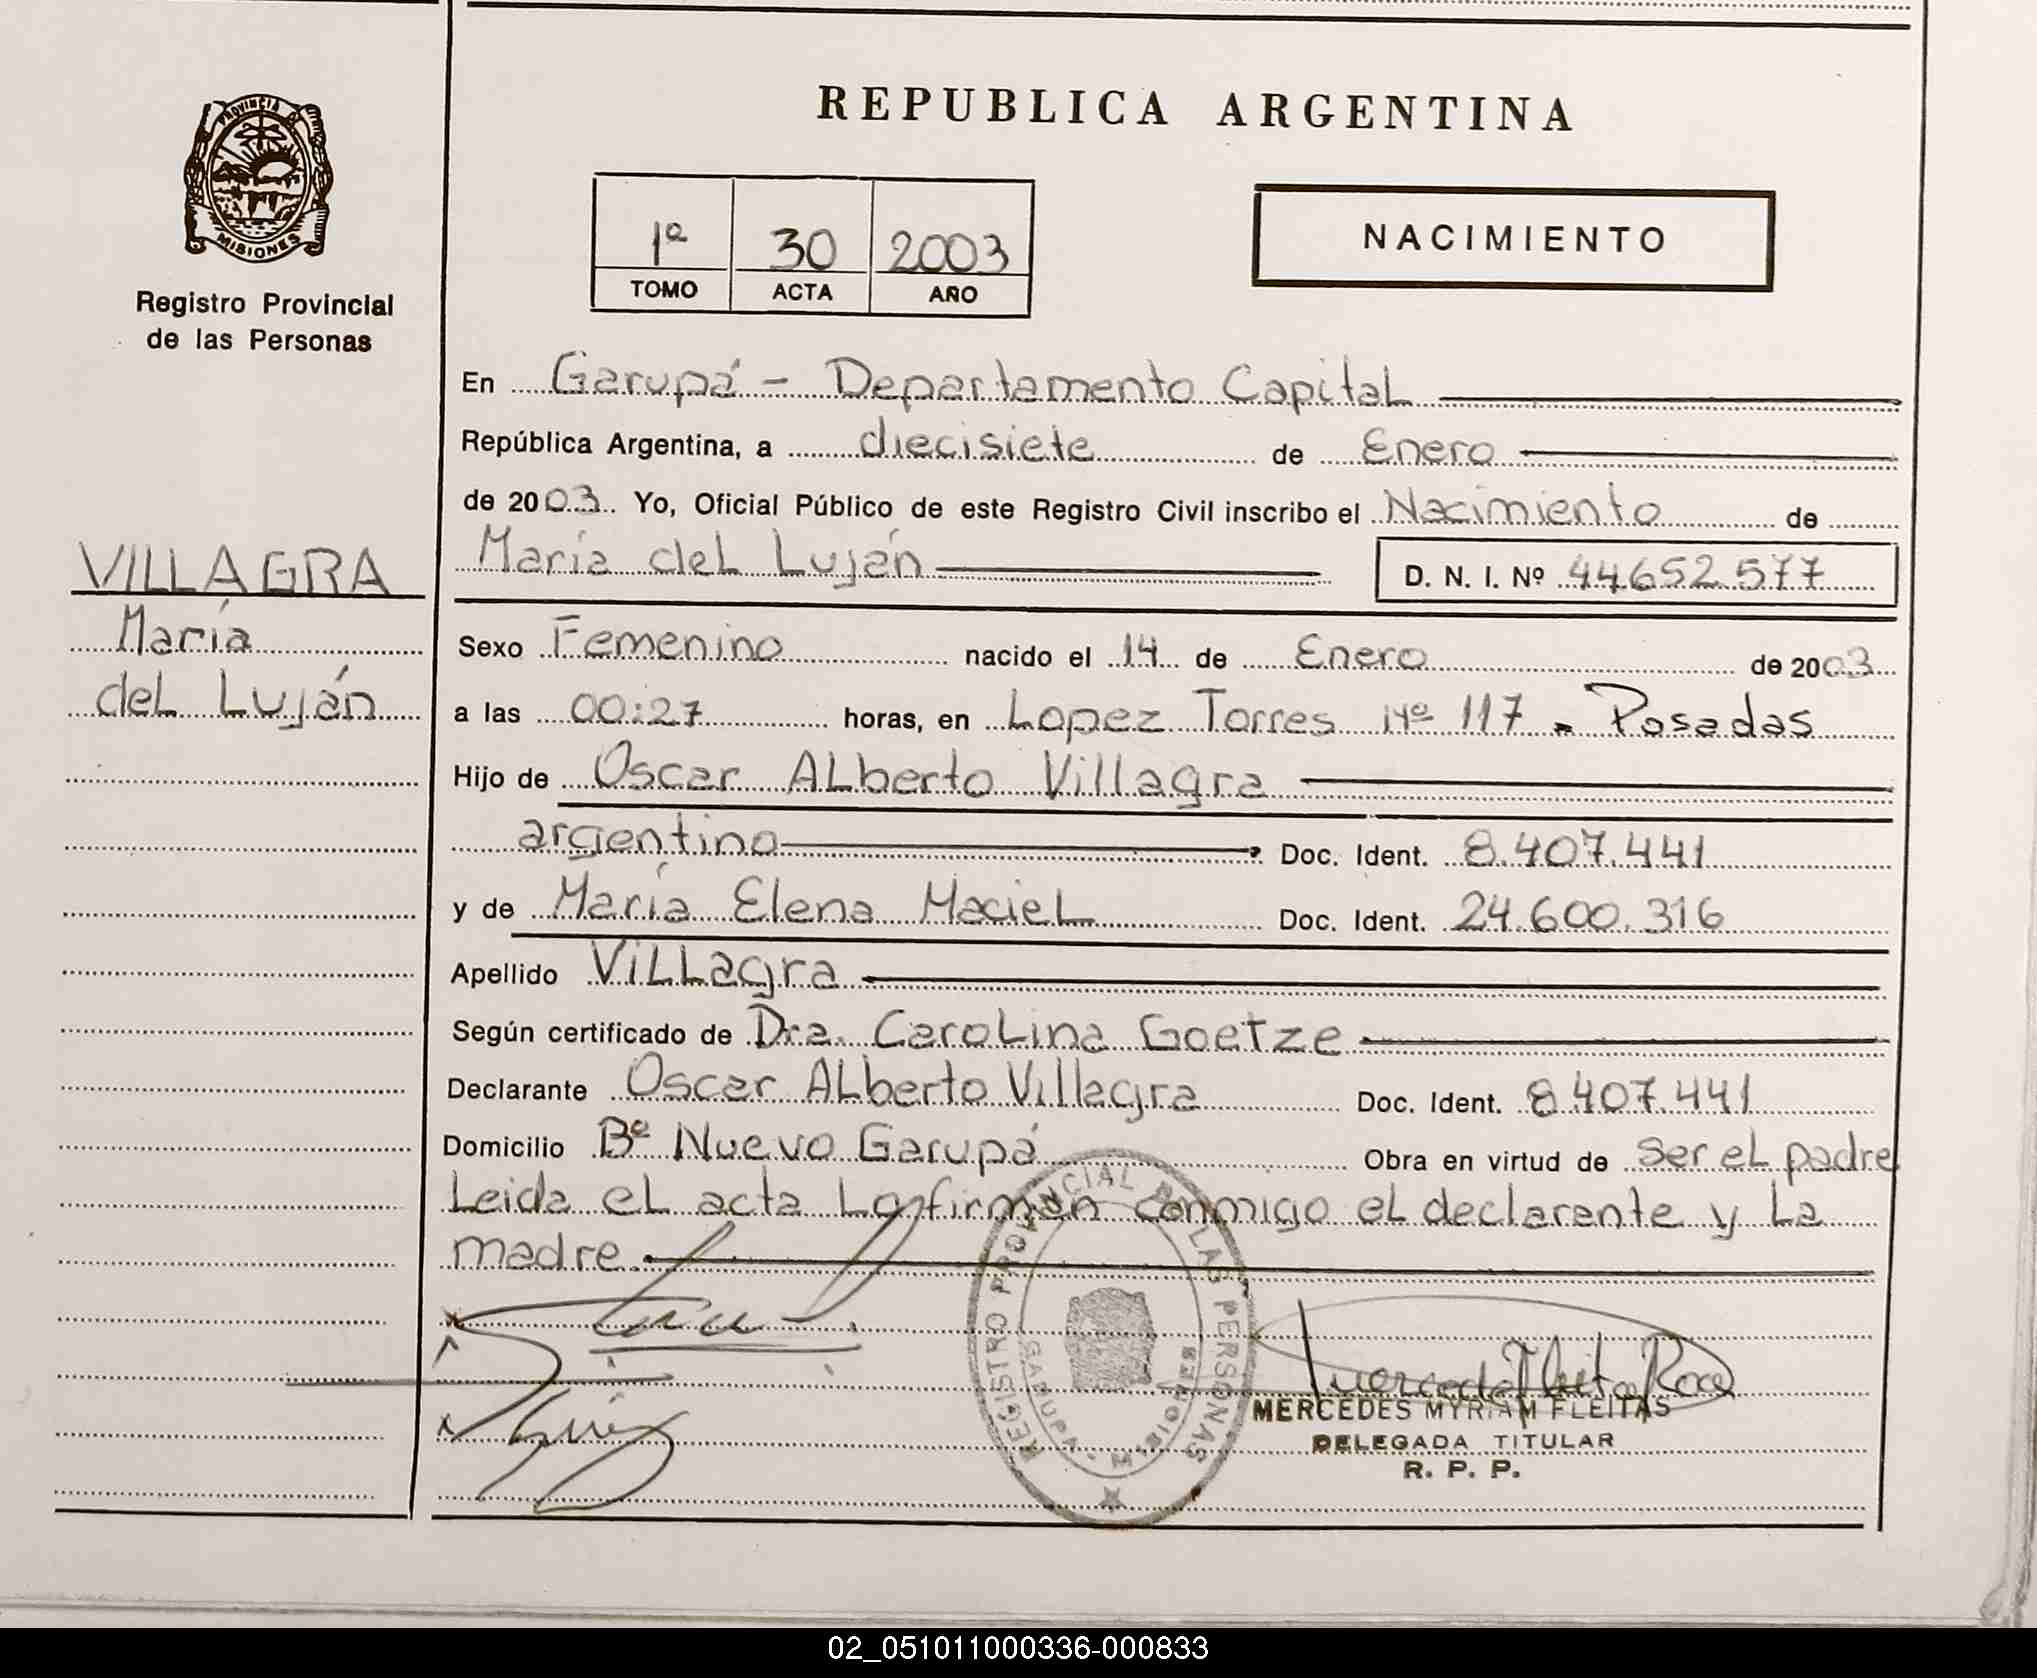 REPUBLICA ARGENTINA
PROVINCIA DE MISIONES
Registro Provincial
de las Personas
1º 30 2003
TOMO ACTA AÑO
NACIMIENTO
En Garupá - Departamento Capital
República Argentina, a diecisiete de Enero
de 2003. Yo, Oficial Público de este Registro Civil inscribo el Nacimiento de
María del Luján D. N. I. Nº 44652577
VILLAGRA
María
del Luján
Sexo Femenino nacido el 14 de Enero de 2003
a las 00:27 horas, en Lopez Torres Nº 117 - Posadas
Hijo de Oscar Alberto Villagra
argentino Doc. Ident. 8.407.441
y de María Elena Maciel Doc. Ident. 24.600.316
Apellido Villagra
Según certificado de Dra. Carolina Goetze
Declarante Oscar Alberto Villagra Doc. Ident. 8.407.441
Domicilio Bº Nuevo Garupá Obra en virtud de ser el padre
Leida el acta La firman conmigo el declarante y La
madre.
REGISTRO PROVINCIAL DE LAS PERSONAS
GARUPA - MISIONES
MERCEDES MYRIAM FLEITAS
DELEGADA TITULAR
R. P. P.
02_051011000336-000833